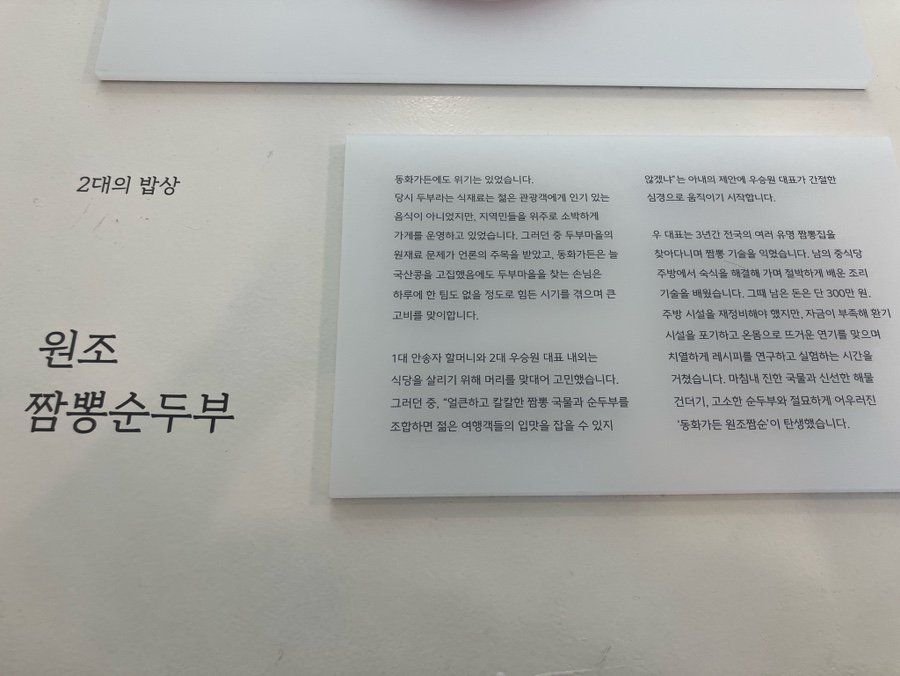 2대의 밥상
원조
짬뽕순두부
동화가든에도 위기는 있었습니다.
당시 두부라는 식재료는 젊은 관광객에게 인기 있는
음식이 아니었지만, 지역민들을 위주로 소박하게
가게를 운영하고 있었습니다. 그러던 중 두부마을의
원재료 문제가 언론의 주목을 받았고, 동화가든은 늘
국산콩을 고집했음에도 두부마을을 찾는 손님은
하루에 한 팀도 없을 정도로 힘든 시기를 겪으며 큰
고비를 맞이합니다.
1대 안송자 할머니와 2대 우승원 대표 내외는
식당을 살리기 위해 머리를 맞대어 고민했습니다.
그러던 중, “얼큰하고 칼칼한 짬뽕 국물과 순두부를
조합하면 젊은 여행객들의 입맛을 잡을 수 있지
않겠냐”는 아내의 제안에 우승원 대표가 간절한
심경으로 움직이기 시작합니다.
우 대표는 3년간 전국의 여러 유명 짬뽕집을
찾아다니며 짬뽕 기술을 익혔습니다. 남의 중식당
주방에서 숙식을 해결해 가며 절박하게 배운 조리
기술을 배웠습니다. 그때 남은 돈은 단 300만 원.
주방 시설을 재정비해야 했지만, 자금이 부족해 환기
시설을 포기하고 온몸으로 뜨거운 연기를 맞으며
치열하게 레시피를 연구하고 실험하는 시간을
거쳤습니다. 마침내 진한 국물과 신선한 해물
건더기, 고소한 순두부와 절묘하게 어우러진
‘동화가든 원조짬순’이 탄생했습니다.